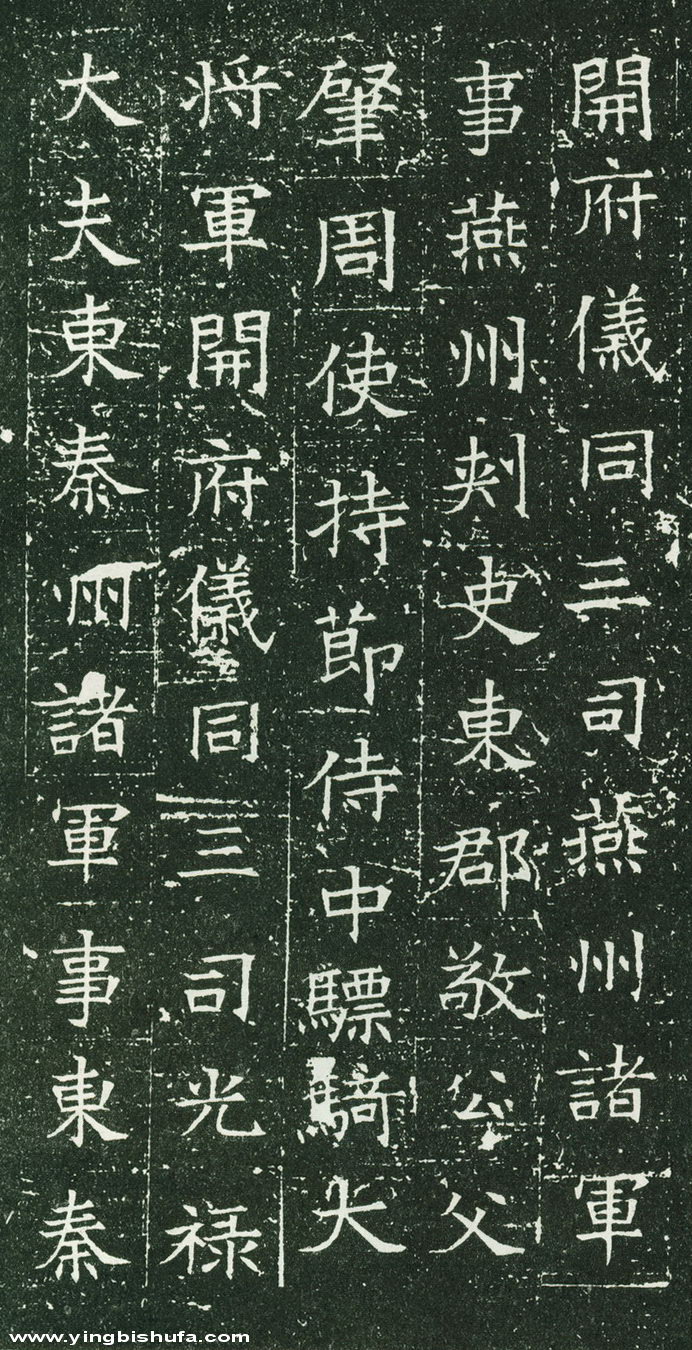 開府儀同三司燕州諸軍
事燕州刾史東郡敬公父
肇周使持節侍中驃騎大
将軍開府儀同三司光禄
大夫東秦州諸軍事東秦
www.yingbishufa.com